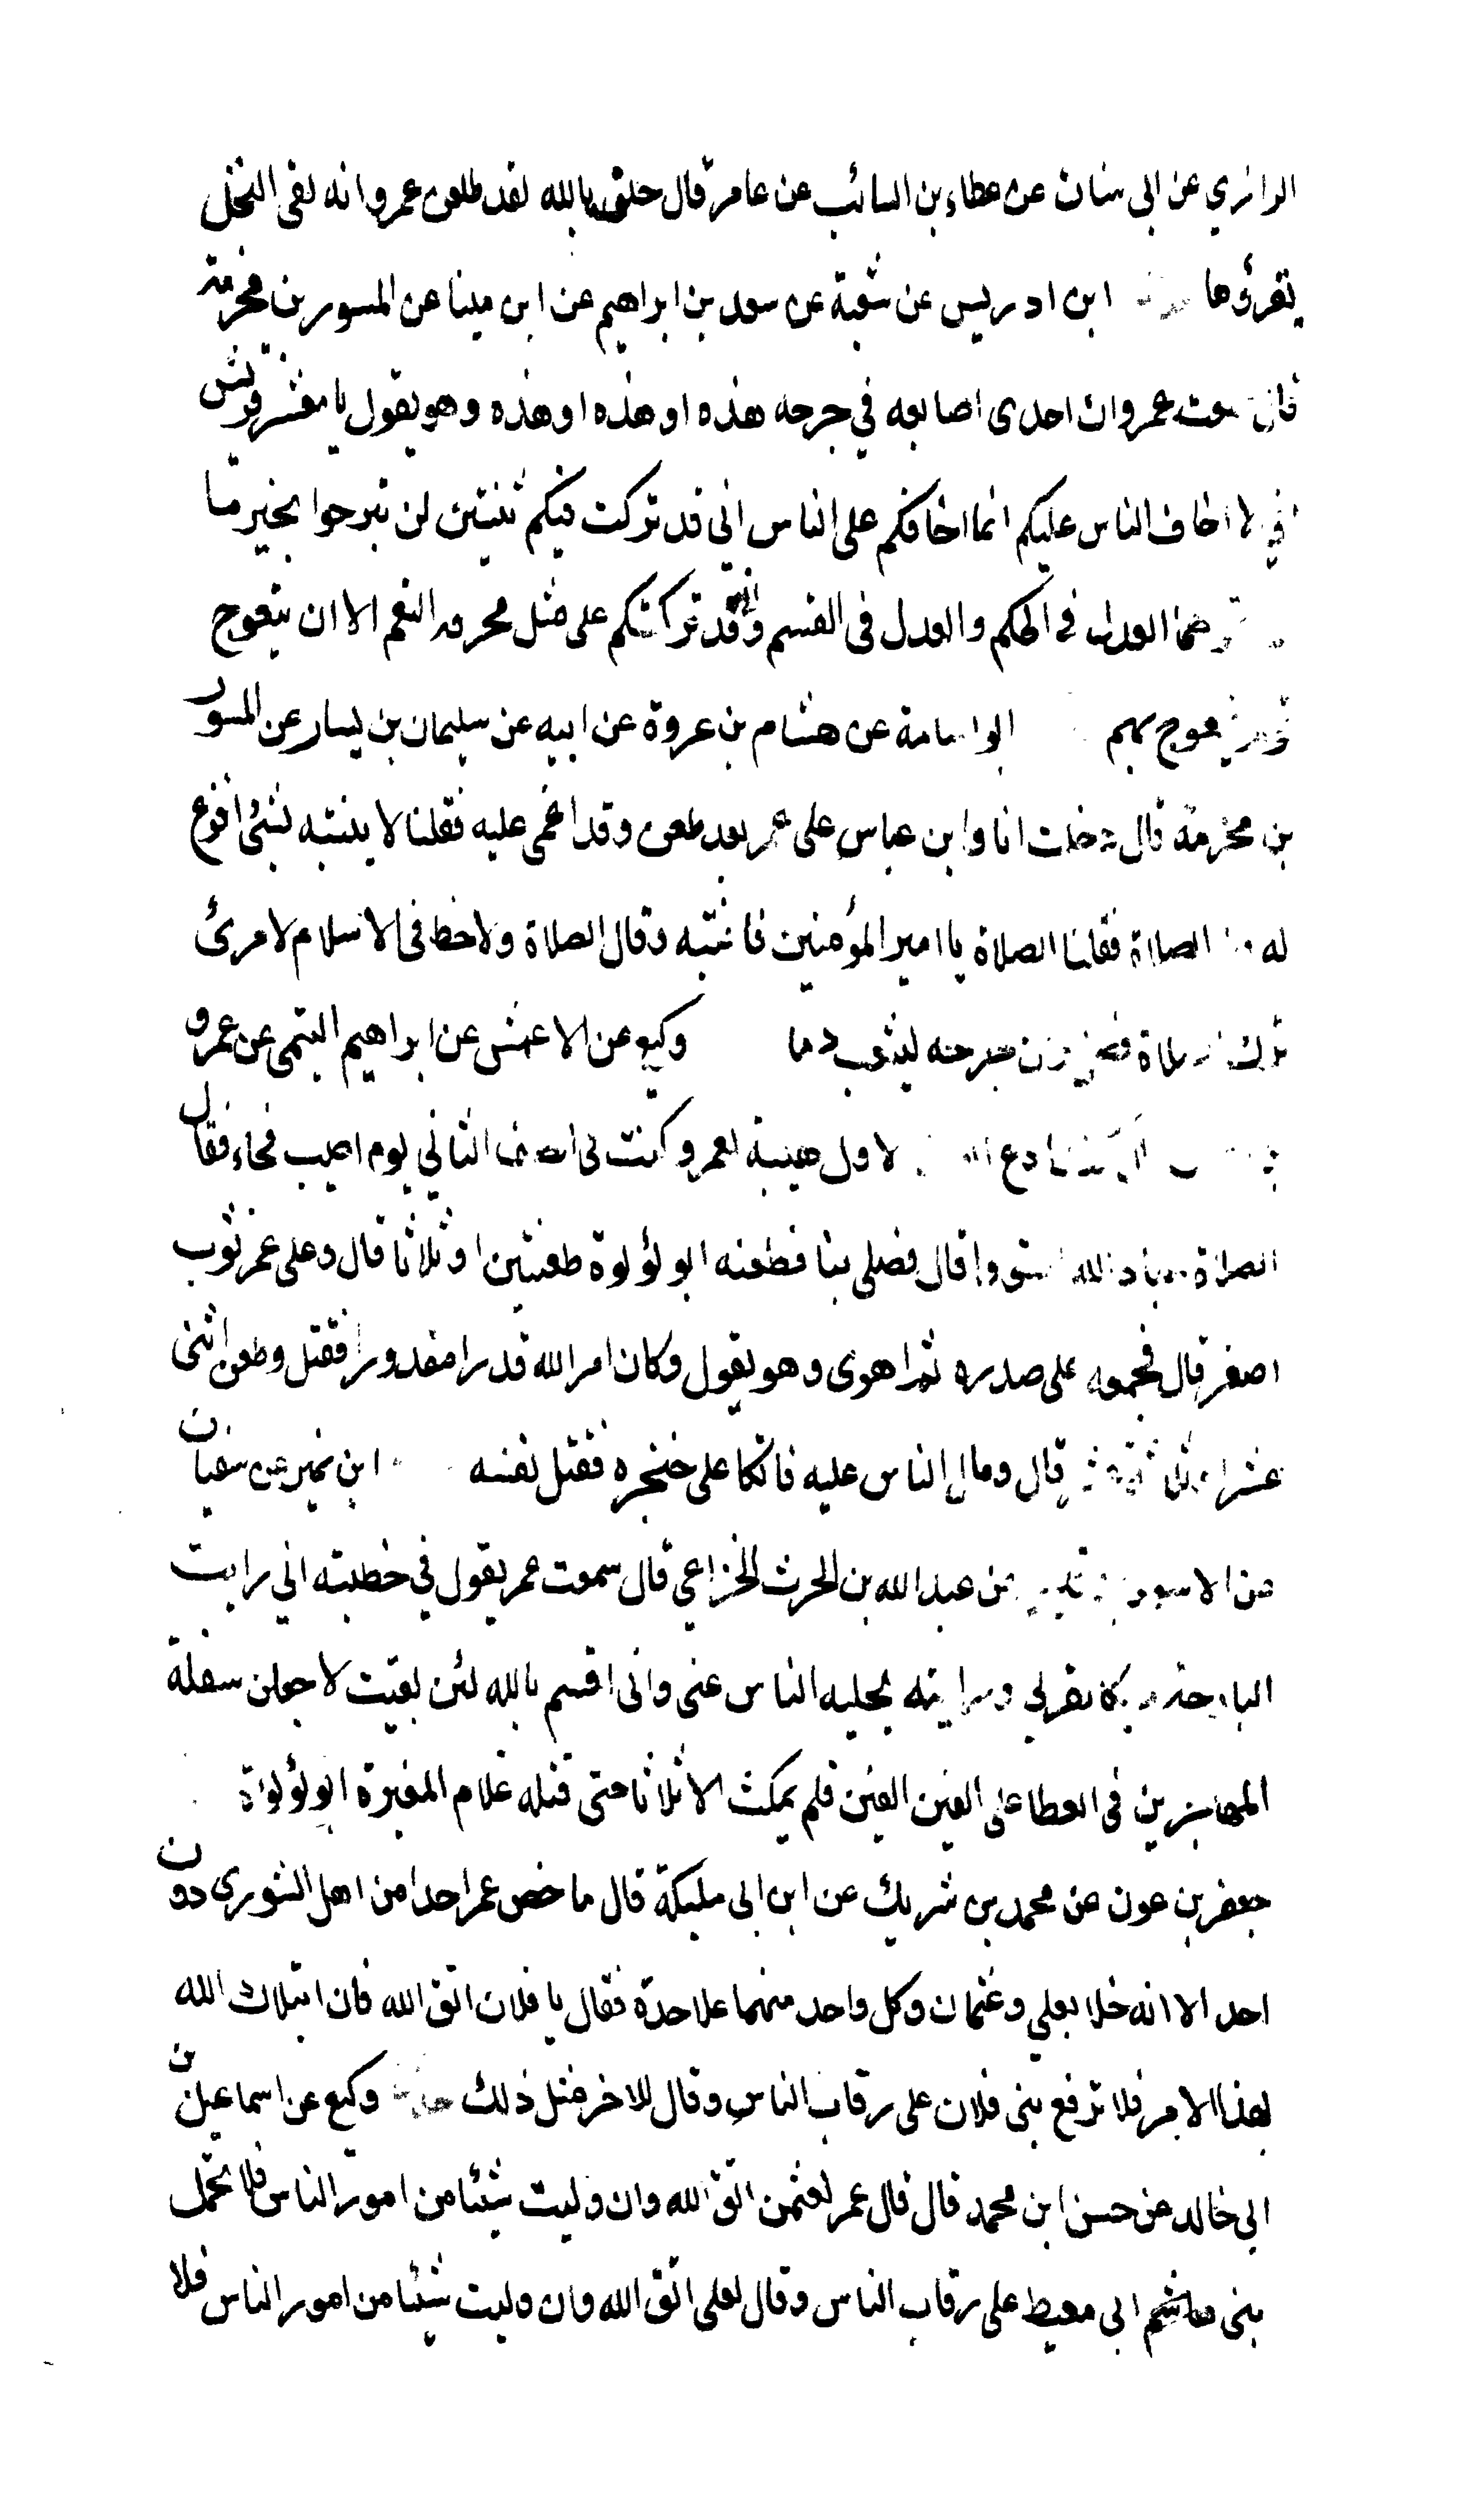 الرازي عن ابي سنان عن عطاء بن السائب عن عامر قال حلق بالله لقد طعن عمر وانه لفي النحل
يقرؤها ابن ادريس عن شعبة عن سعد بن ابراهيم عن ابن مينا عن المسور بن مخرمة
قال سمعت عمر وان احدى اصابعه في جرحه هذه او هذه او هذه وهو يقول يا معشر قريش
اني لا اخاف الناس عليكم انما اخافكم على الناس اني قد تركت فيكم ثنتين لن تبرحوا بخير ما
العدل في الحكم والعدل في القسم واني قد تركتكم على مثل مخرمة النعم الا ان يتعوج
قوم فيعوج بهم ابو اسامة عن هشام بن عروة عن ابيه عن سليمان بن يسار عن المسور
بن مخرمة قال دخلت انا وابن عباس على عمر بعد طعن وقد اغمي عليه فقلنا لا ينتبه لشئ افزع
له من الصلاة فقلنا الصلاة يا امير المؤمنين فانتبه وقال الصلاة ولا حظ في الاسلام لامرئ
ترك الصلاة جرحه ليثعب دما وكيع عن الاعمش عن ابراهيم التيمي عن عمرو
ادع الاول هيبة لعمر وكنت في الصف الثاني يوم اصيب فجاء فقال
الصلاة عباد الله استووا قال فصلى بنا فطعنه ابو لؤلوة طعنتين او ثلاثا قال وعلى عمر ثوب
اصفر قال فجمعه على صدره ثم اهوى وهو يقول وكان امر الله قدرا مقدورا فقتل وطعن اثنى
عشر او ثلاثة عشر قال ومال الناس عليه فاتكا على خنجره فقتل نفسه ابن نمير عن سفيان
عن الاسود بن قيس عن عبد الله بن الحرث الخزاعي قال سمعت عمر يقول في خطبته اني رايت
البارحة ديكا نقرني ورايته يجليه الناس عنى وانى اقسم بالله لئن بقيت لاجعلن سفلة
المهاجرين في العطا على الفين الفين فلم يمكث الا ثلاثا حتى قتله غلام المغيرة ابو لؤلؤة
جعفر بن عون عن محمد بن شريك عن ابن ابي مليكة قال ما خص عمر احدا من اهل الشورى دون
احد الا انه خلا بعلي وعثمان وكل واحد منهما علا حدة فقال يا فلان اتق الله فان ابتلاك الله
بهذا الامر فلا ترفع بنى فلان على رقاب الناس وقال للاخر مثل ذلك وكيع عن اسماعيل بن
ابي خالد عن حسن ابن محمد قال قال عمر لعثمن اتق الله وان وليت شيئا من امور الناس فلا تحمل
بنى ابي معيط على رقاب الناس وقال لعلى اتق الله وان وليت شيئا من امور الناس فلا